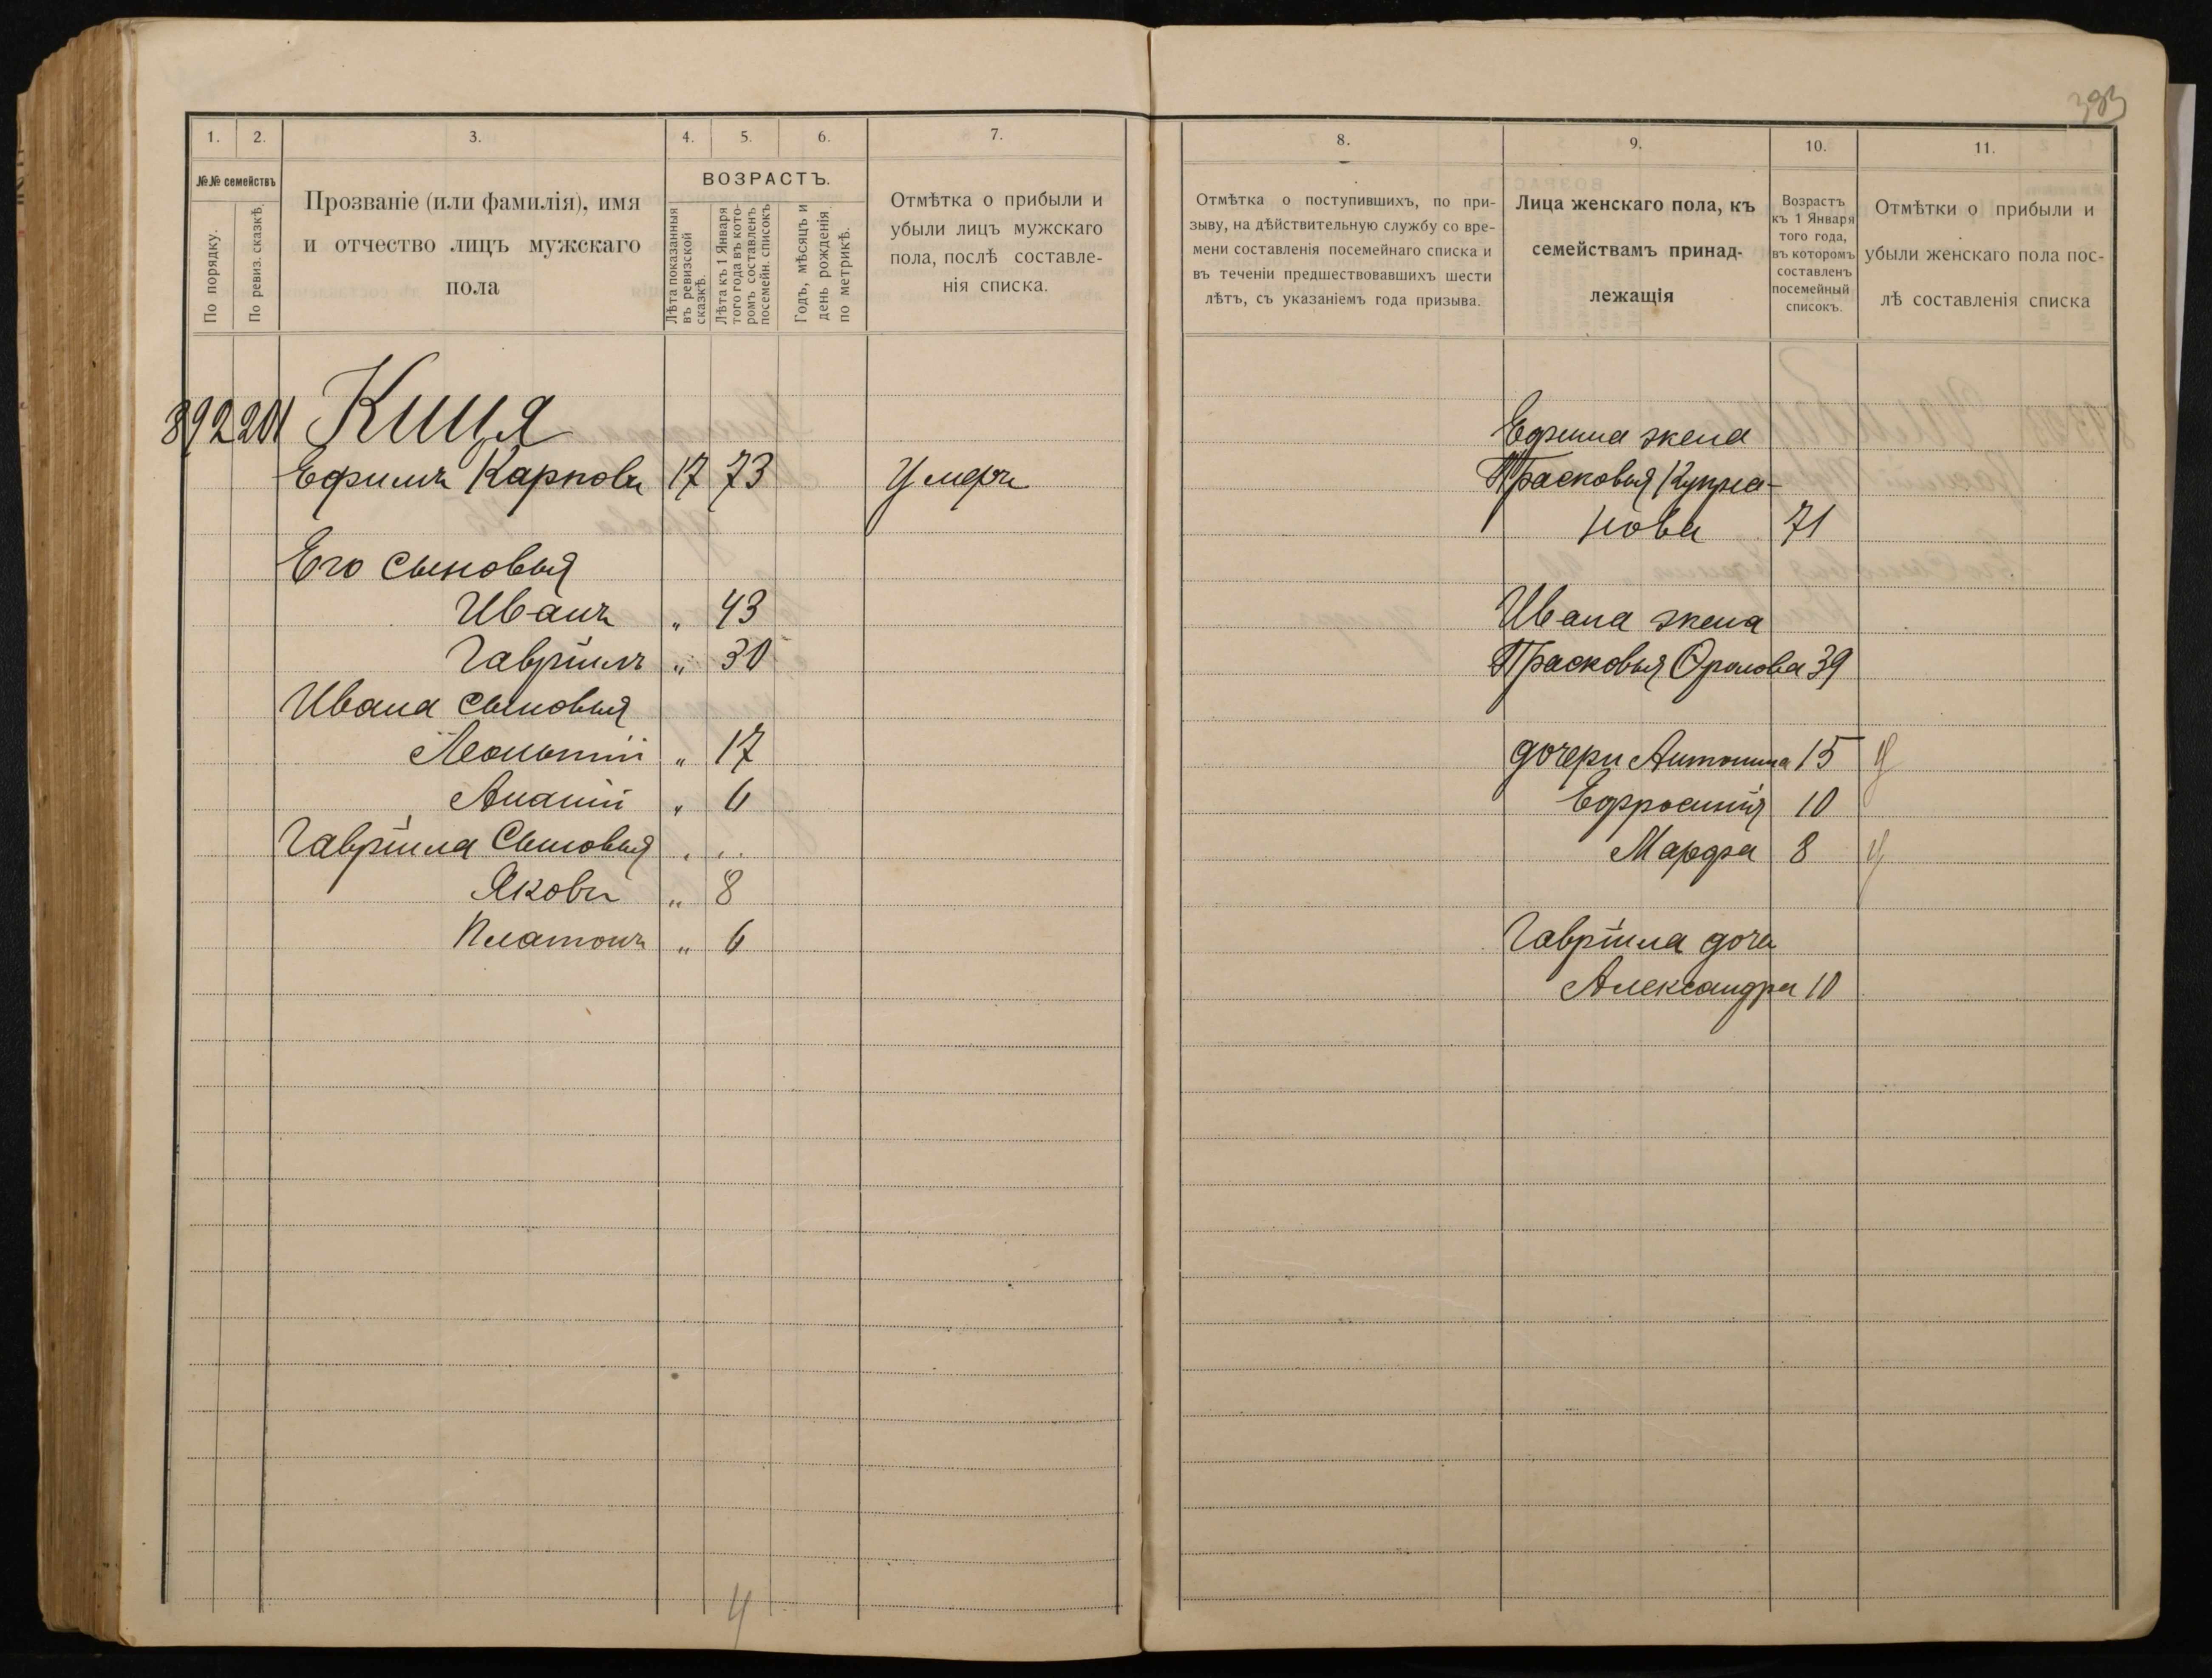 393
1. 2. 3. 4. 5. 6. 7.
№№ семействъ
По порядку.
По ревиз. сказкѣ.
Прозваніе (или фамилія), имя
и отчество лицъ мужскаго
пола
ВОЗРАСТЪ.
Лѣта показанныя
въ ревизской
сказкѣ.
Лѣта къ 1 Января
того года въ кото-
ромъ составленъ
посемейн. списокъ
Годъ, мѣсяцъ и
день рожденія
по метрикѣ.
Отмѣтка о прибыли и
убыли лицъ мужскаго
пола, послѣ составле-
нія списка.
892 201
Ефимъ Карповъ 17 73 Умеръ
Его сыновья
Иванъ „ 43
Гавріилъ „ 30
Ивана сыновья
Леонтій „ 17
Ананій „ 6
Гавріила Сыновья
Яковъ „ 8
Платонъ „ 6
4
8. 9. 10. 11.
Отмѣтка о поступившихъ, по при-
зыву, на дѣйствительную службу со вре-
мени составленія посемейнаго списка и
въ теченіи предшествовавшихъ шести
лѣтъ, съ указаніемъ года призыва.
Лица женскаго пола, къ
семействамъ принад-
лежащія
Возрастъ
къ 1 Января
того года,
въ которомъ
составленъ
посемейный
списокъ.
Отмѣтки о прибыли и
убыли женскаго пола пос-
лѣ составленія списка
Ефима жена
Прасковья Купреа-
нова 71
Ивана жена
Прасковья Фролова 39
дочери Антонина 15 у
Ефросинія 10
Марфа 8 у
Гавріила дочь
Александра 10